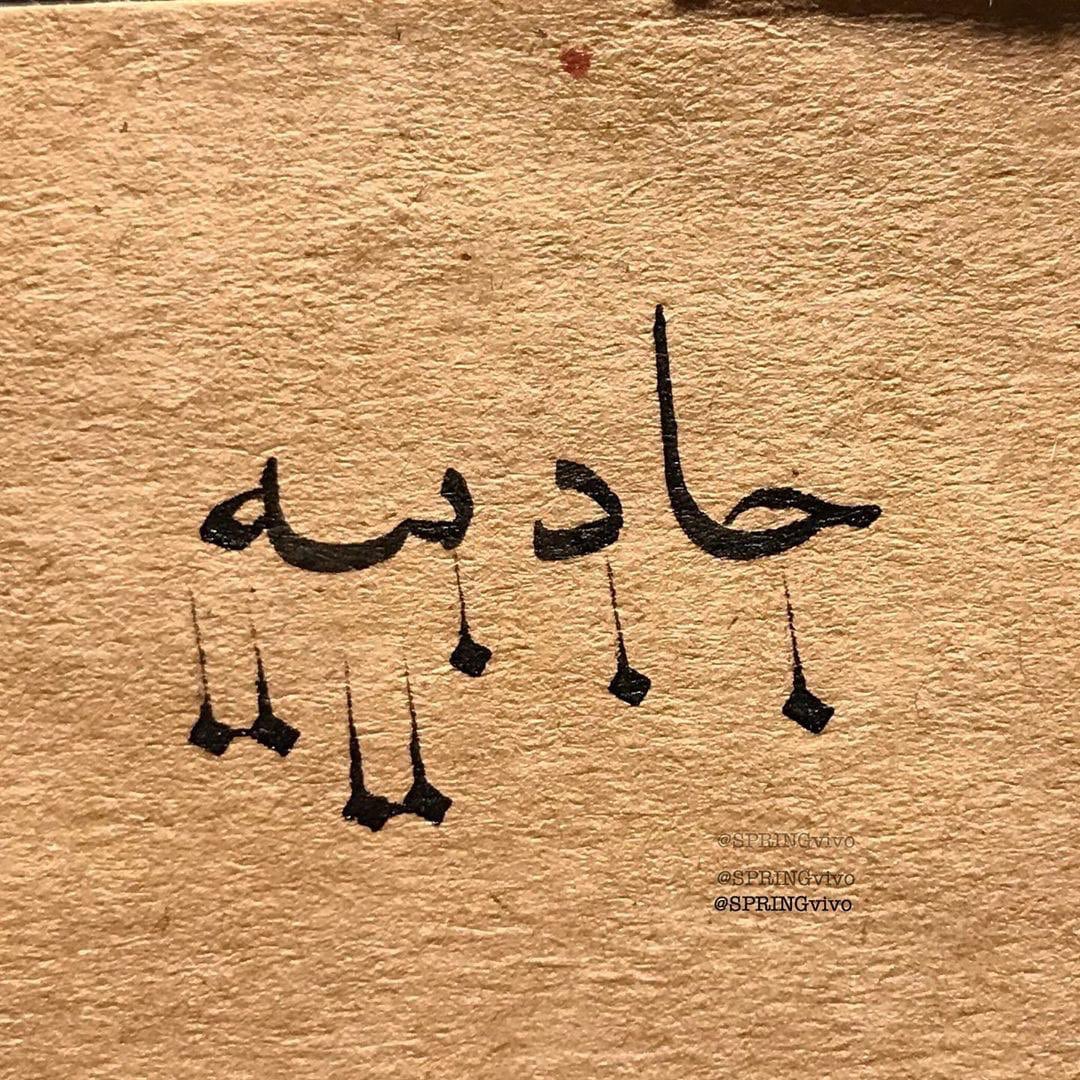 جاذبية
@SPRINGvivo
@SPRINGvivo
@SPRINGvivo